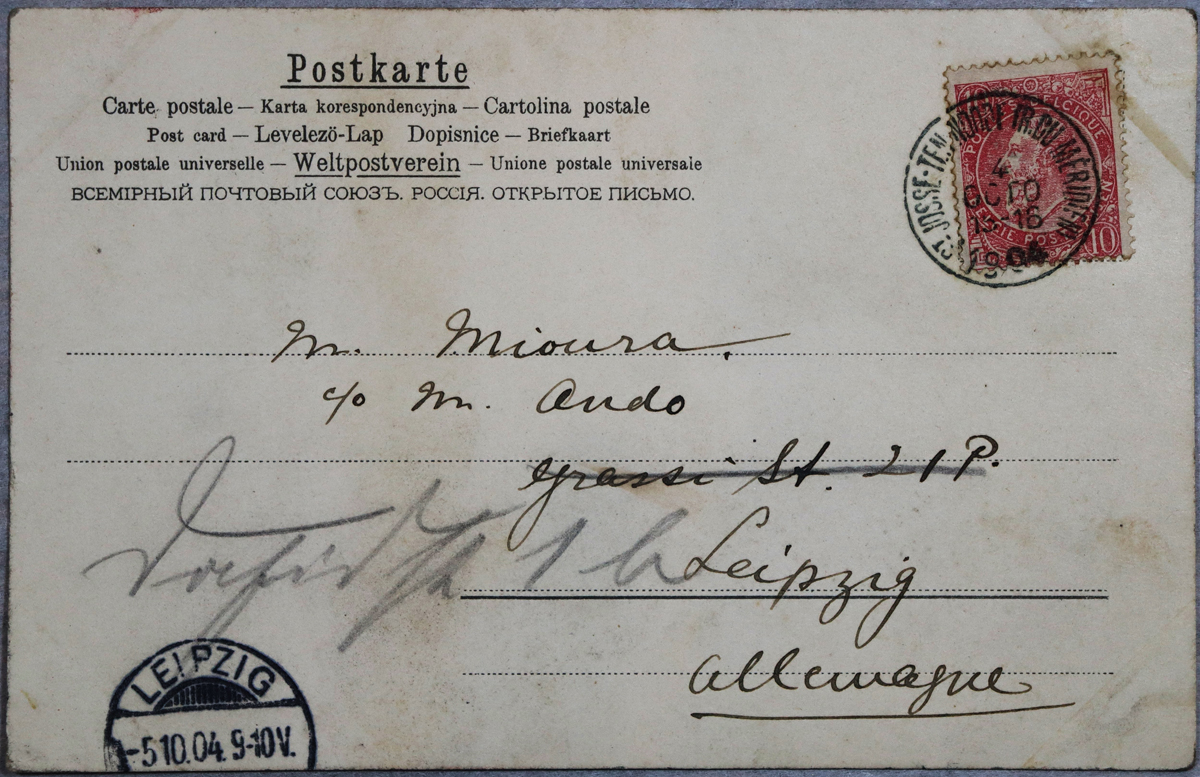 Postkarte
Carte postale — Karta korespondencyjna — Cartolina postale
Post card — Levelező-Lap Dopisnice — Briefkaart
Union postale universelle — Weltpostverein — Unione postale universale
ВСЕМІРНЫЙ ПОЧТОВЫЙ СОЮЗЪ. РОССІЯ. ОТКРЫТОЕ ПИСЬМО.
ST JOSSE-TEN-NOODE (R. DU MÉRIDIEN)
4
OCTO
15-16
1904
10
M. Mioura.
c/o M. Ando
Grassi St. 21 P.
1 b
Leipzig
Allemagne
LEIPZIG
-5.10.04. 9-10V.